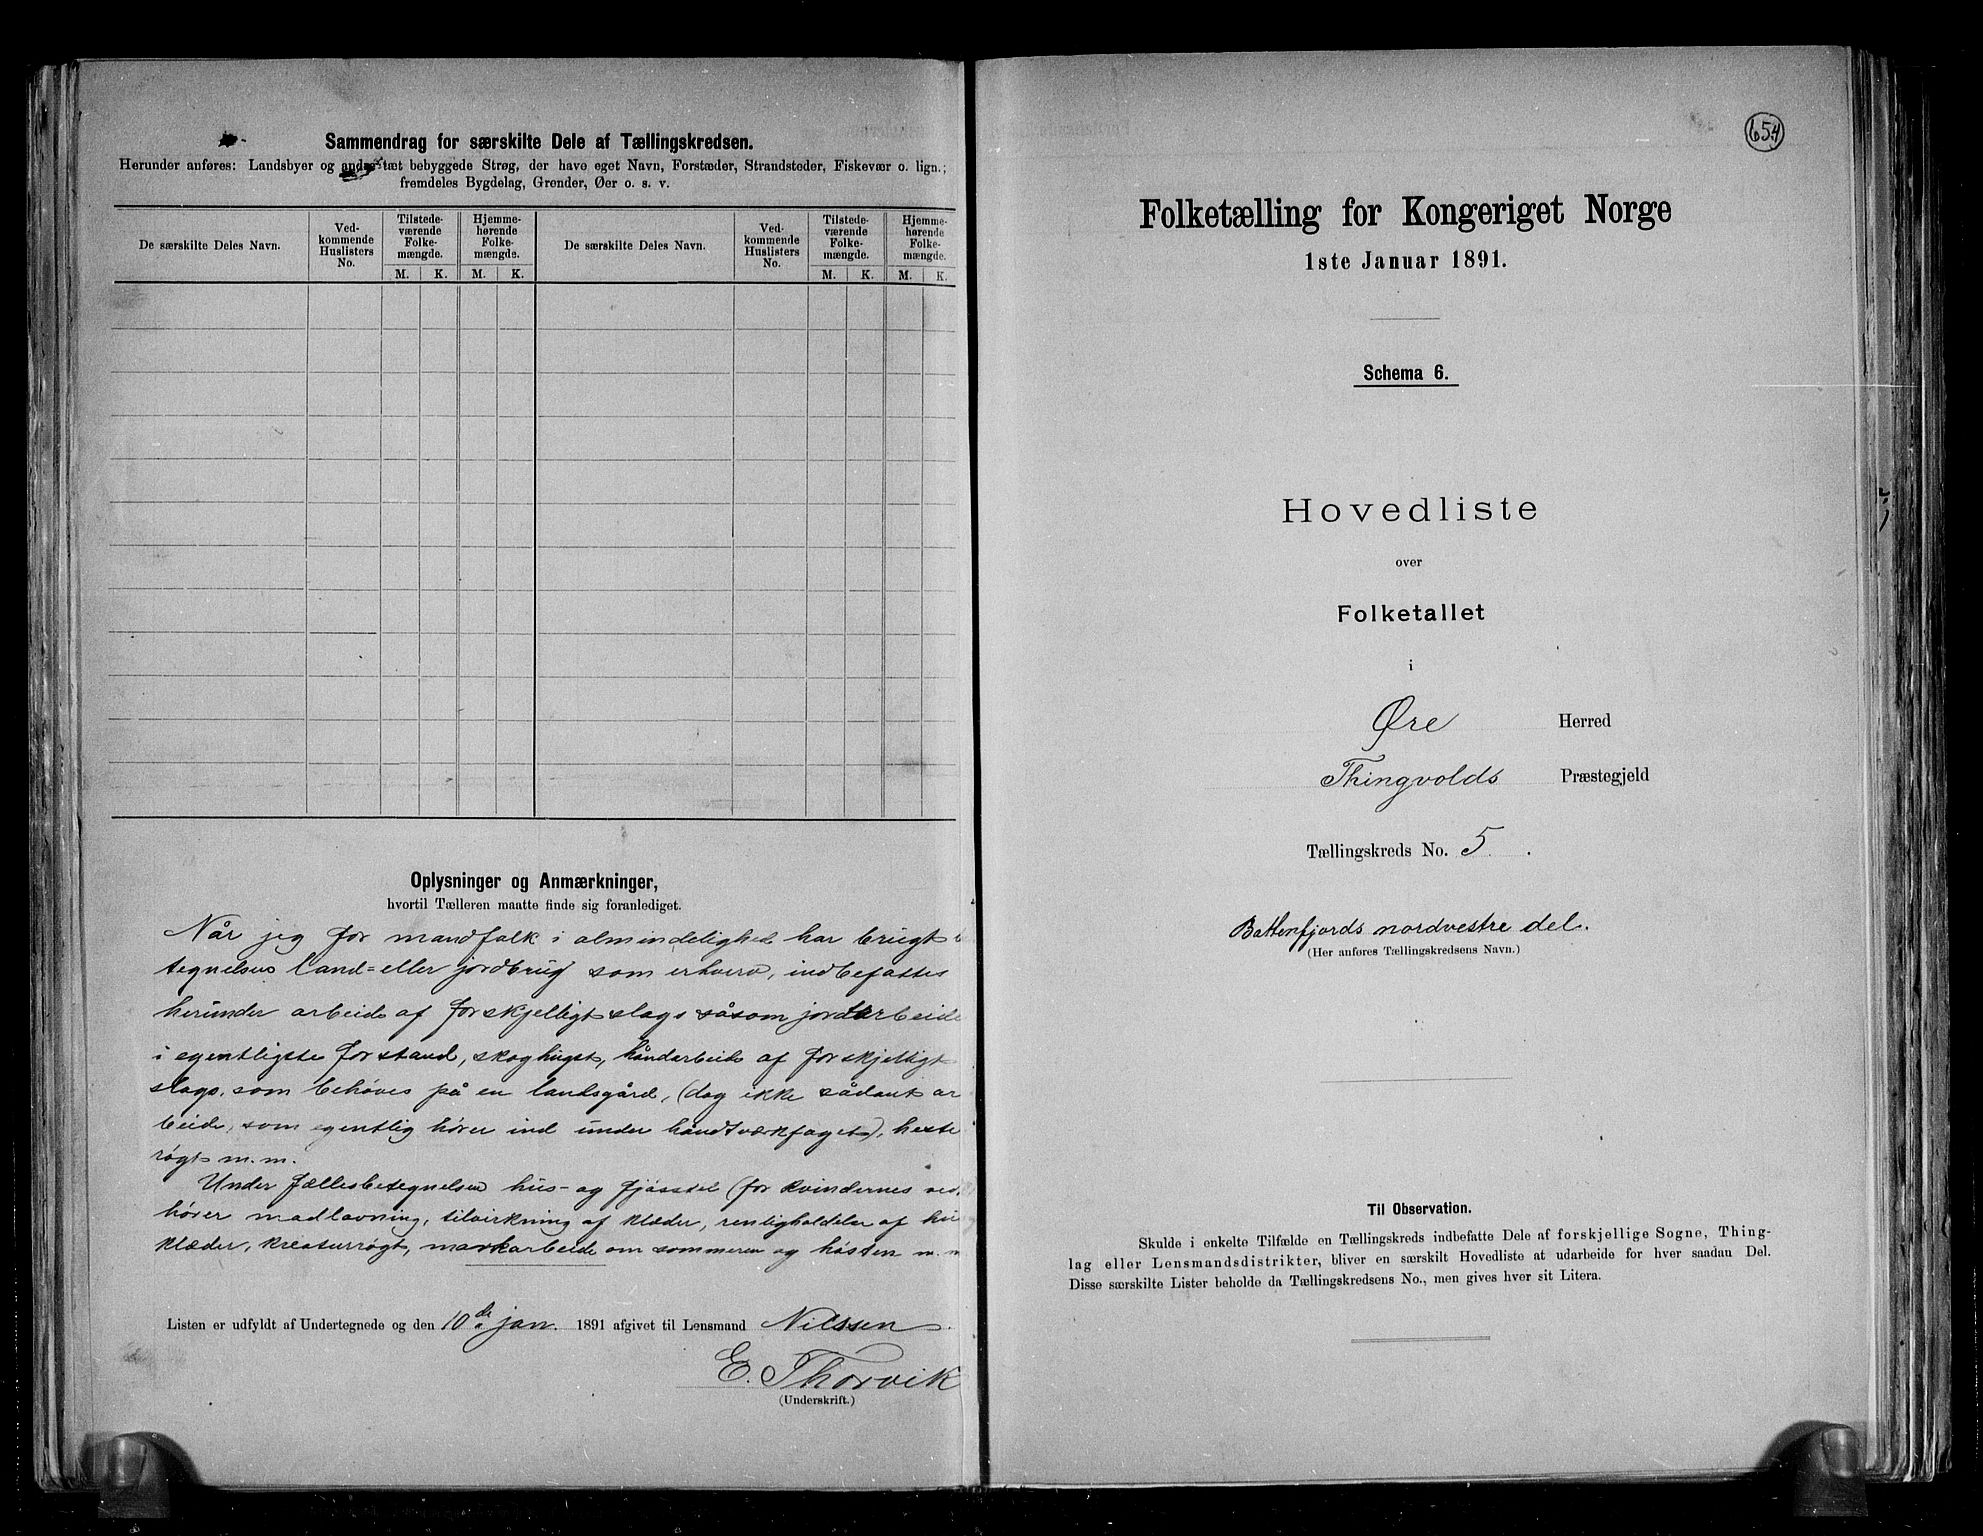 Sammendrag for særskilte Dele af Tællingskredsen.
Herunder anføres: Landsbyer og andre tæt bebyggede Strøg, der have eget Navn, Forstæder, Strandsteder, Fiskevær o. lign.;
fremdeles Bygdelag, Grender, Øer o. s. v.
De særskilte Deles Navn.
Ved-
kommende
Huslisters
No.
Tilstede-
værende
Folke-
mængde.
M. K.
Hjemme-
hørende
Folke-
mængde.
M. K.
De særskilte Deles Navn.
Ved-
kommende
Huslisters
No.
Tilstede-
værende
Folke-
mængde.
M. K.
Hjemme-
hørende
Folke-
mængde.
M. K.
Oplysninger og Anmærkninger,
hvortil Tælleren maatte finde sig foranlediget.
Når jeg for mandfolk i almindelighed har brugt
tegnelsen land- eller jordbrug som erhverv, indbefattes
herunder arbeide af forskjelligt slags såsom jordarbeide
i egentligste forstand, skoghugst, håndarbeide af forskjelligt
slags, som behøves på en landsgård, (dog ikke sådant ar
beide, som egentlig hører ind under håndtværkfaget), heste
røgt m.m.
Under fællesbetegnelsen hus- og fjøsstel (for kvindernes ved
hører madlavning, tilvirkning af klæder, renligholdelse af hu
klæder, kreaturrøgt, markarbeide om sommeren og høsten m. m
Listen er udfyldt af Undertegnede og den 10de jan. 1891 afgivet til Lensmand Nilssen.
E. Thorvik
(Underskrift.)
654
Folketælling for Kongeriget Norge
1ste Januar 1891.
Schema 6.
Hovedliste
over
Folketallet
i
Øre Herred
Thingvolds Præstegjeld
Tællingskreds No. 5.
Battenfjords nordvestre del.
(Her anføres Tællingskredsens Navn.)
Til Observation.
Skulde i enkelte Tilfælde en Tællingskreds indbefatte Dele af forskjellige Sogne, Thing-
lag eller Lensmandsdistrikter, bliver en særskilt Hovedliste at udarbeide for hver saadan Del.
Disse særskilte Lister beholde da Tællingskredsens No., men gives hver sit Litera.